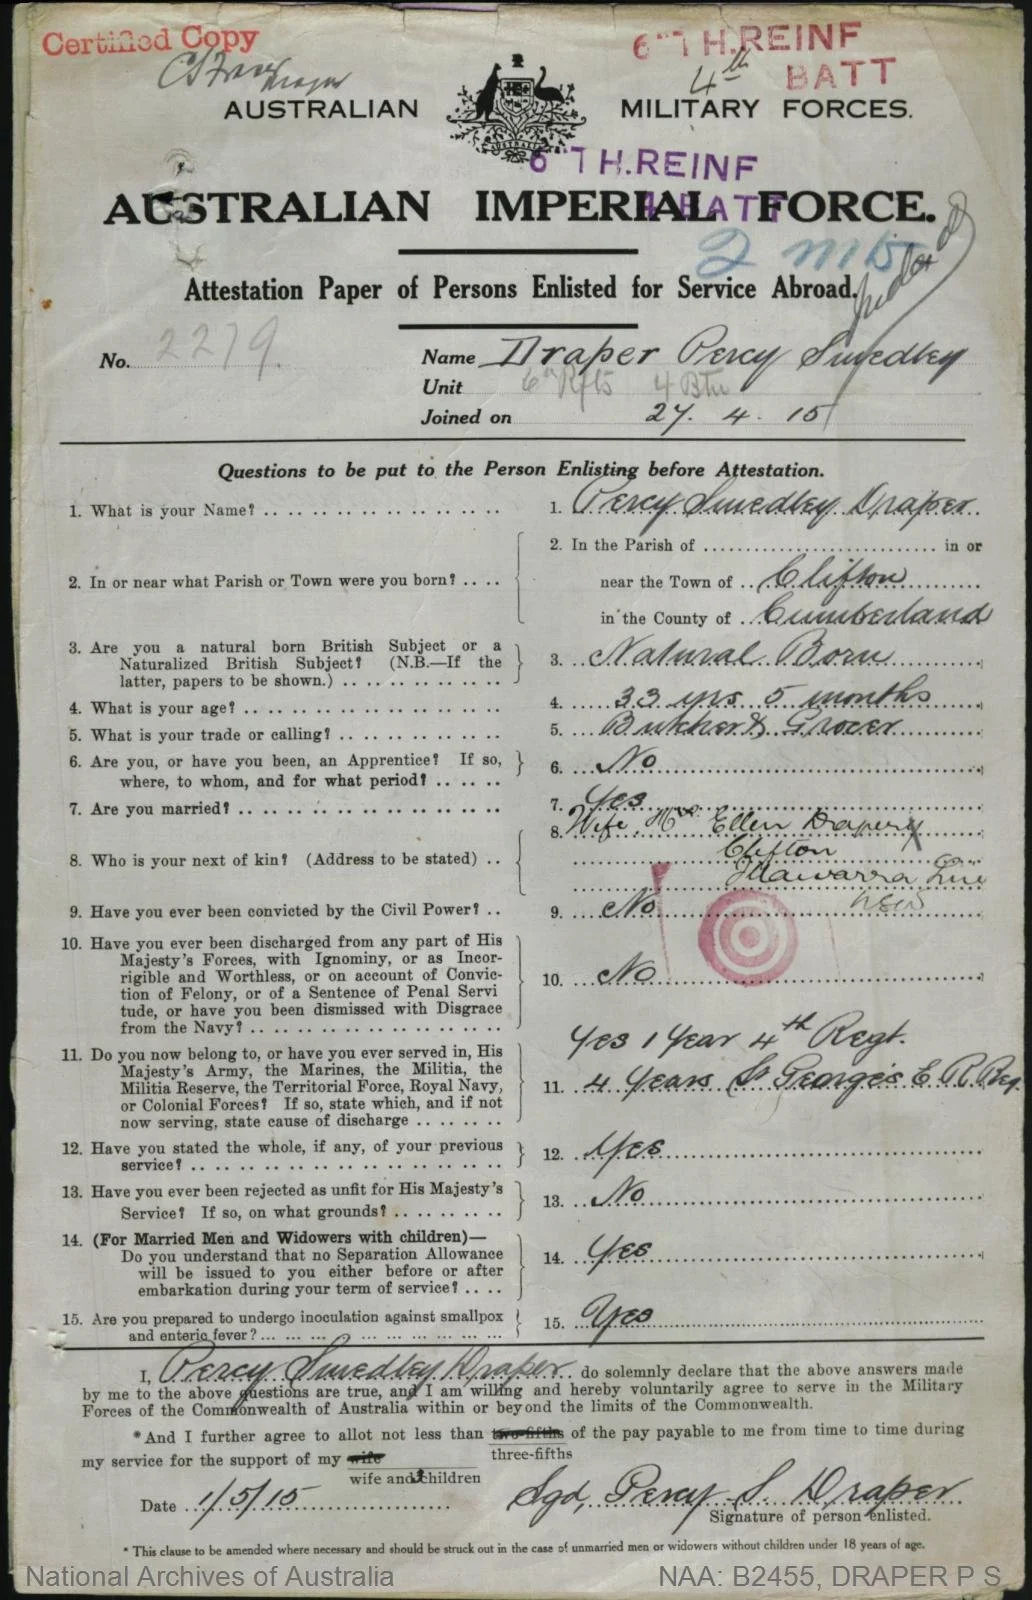 Certified Copy
6TH.REINF
4th BATT
Major
AUSTRALIAN MILITARY FORCES.
AUSTRALIA
6TH.REINF
4 BATT
AUSTRALIAN IMPERIAL FORCE.
Attestation Paper of Persons Enlisted for Service Abroad.
No. 2279. Name Draper Percy Smedley
Unit 6th Rfts 4 Btn
Joined on 27. 4. 15
Questions to be put to the Person Enlisting before Attestation.
1. What is your Name? 1. Percy Smedley Draper
2. In or near what Parish or Town were you born? 2. In the Parish of in or
near the Town of Clifton
in the County of Cumberland
3. Are you a natural born British Subject or a
Naturalized British Subject? (N.B.—If the
latter, papers to be shown.) 3. Natural Born
4. What is your age? 4. 33 yrs 5 months
5. What is your trade or calling? 5. Butcher & Grocer
6. Are you, or have you been, an Apprentice? If so,
where, to whom, and for what period? 6. No
7. Are you married? 7. Yes
8. Who is your next of kin? (Address to be stated) 8. Wife, Mrs Ellen Draper
Clifton
Illawarra Line
NSW
9. Have you ever been convicted by the Civil Power? 9. No
10. Have you ever been discharged from any part of His
Majesty's Forces, with Ignominy, or as Incor-
rigible and Worthless, or on account of Convic-
tion of Felony, or of a Sentence of Penal Servi
tude, or have you been dismissed with Disgrace
from the Navy? 10. No
11. Do you now belong to, or have you ever served in, His
Majesty's Army, the Marines, the Militia, the
Militia Reserve, the Territorial Force, Royal Navy,
or Colonial Forces? If so, state which, and if not
now serving, state cause of discharge
Yes 1 Year 4th Regt.
11. 4 Years St George's E. R. Reg.
12. Have you stated the whole, if any, of your previous
service? 12. Yes
13. Have you ever been rejected as unfit for His Majesty's
Service? If so, on what grounds? 13. No
14. (For Married Men and Widowers with children)—
Do you understand that no Separation Allowance
will be issued to you either before or after
embarkation during your term of service? 14. Yes
15. Are you prepared to undergo inoculation against smallpox
and enteric fever? 15. Yes
I, Percy Smedley Draper do solemnly declare that the above answers made
by me to the above questions are true, and I am willing and hereby voluntarily agree to serve in the Military
Forces of the Commonwealth of Australia within or beyond the limits of the Commonwealth.
*And I further agree to allot not less than two-fifths of the pay payable to me from time to time during
three-fifths
my service for the support of my wife
wife and 3 children
Date 1/5/15 Sgd, Percy S. Draper
Signature of person enlisted.
* This clause to be amended where necessary and should be struck out in the case of unmarried men or widowers without children under 18 years of age.
National Archives of Australia NAA: B2455, DRAPER P S